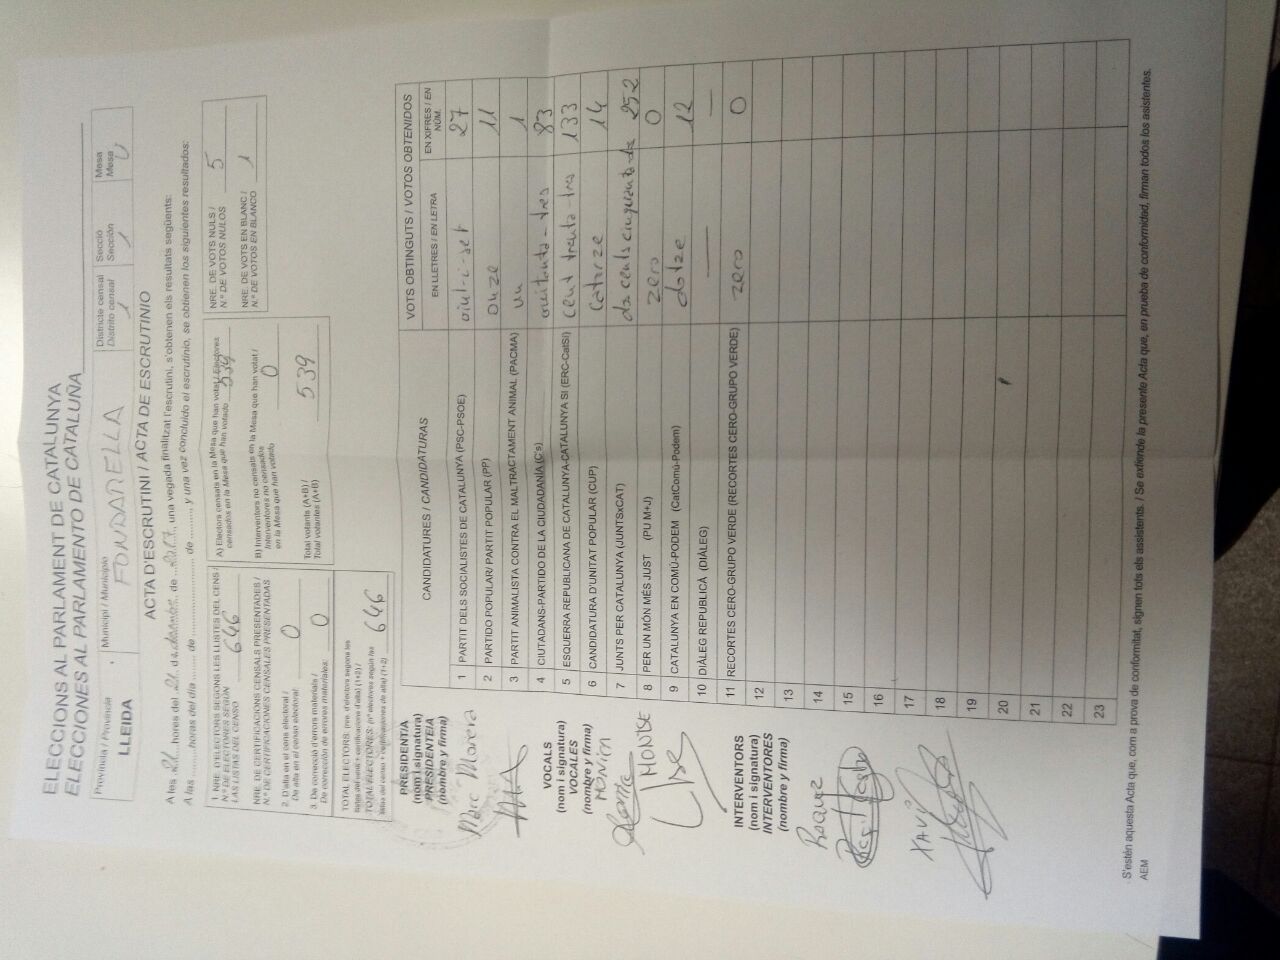 ELECCIONS AL PARLAMENT DE CATALUNYA
ELECCIONES AL PARLAMENTO DE CATALUÑA
Província / Provincia
LLEIDA
Municipi / Municipio
FONDARELLA
Districte censal
Distrito censal
1
Secció
Sección
1
Mesa
Mesa
U
ACTA D'ESCRUTINI / ACTA DE ESCRUTINIO
A les 21 hores del 21 de desembre de 2017, una vegada finalitzat l'escrutini, s'obtenen els resultats següents:
A las ......... horas del día ....... de ..................... de ........, y una vez concluido el escrutinio, se obtienen los siguientes resultados:
1. NRE. D'ELECTORS SEGONS LES LLISTES DEL CENS /
N.º DE ELECTORES SEGÚN
LAS LISTAS DEL CENSO
646
NRE. DE CERTIFICACIONS CENSALS PRESENTADES /
N.º DE CERTIFICACIONES CENSALES PRESENTADAS
2. D'alta en el cens electoral /
De alta en el censo electoral:
0
3. De correcció d'errors materials /
De corrección de errores materiales:
0
TOTAL ELECTORS: (nre. d'electors segons les
llistes del cens + certificacions d'alta) (1+2) /
TOTAL ELECTORES: (nº electores según las
listas del censo + certificaciones de alta) (1+2)
646
A) Electors censats en la Mesa que han votat / Electores
censados en la Mesa que han votado
539
B) Interventors no censats en la Mesa que han votat /
Interventores no censados
en la Mesa que han votado
0
Total votants (A+B) /
Total votantes (A+B)
539
NRE. DE VOTS NULS /
N.º DE VOTOS NULOS
5
NRE. DE VOTS EN BLANC /
N.º DE VOTOS EN BLANCO
1
PRESIDENT/A
(nom i signatura)
PRESIDENTE/A
(nombre y firma)
Marc Morera
VOCALS
(nom i signatura)
VOCALES
(nombre y firma)
MÒNICA
MONTSE
INTERVENTORS
(nom i signatura)
INTERVENTORES
(nombre y firma)
Roque
XAVI
CANDIDATURES / CANDIDATURAS
VOTS OBTINGUTS / VOTOS OBTENIDOS
EN LLETRES / EN LETRA
EN XIFRES / EN NÚM.
1 PARTIT DELS SOCIALISTES DE CATALUNYA (PSC-PSOE) vint-i-set 27
2 PARTIDO POPULAR/ PARTIT POPULAR (PP) onze 11
3 PARTIT ANIMALISTA CONTRA EL MALTRACTAMENT ANIMAL (PACMA) un 1
4 CIUTADANS-PARTIDO DE LA CIUDADANÍA (C's) vuitanta-tres 83
5 ESQUERRA REPUBLICANA DE CATALUNYA-CATALUNYA SI (ERC-CatSI) cent trenta-tres 133
6 CANDIDATURA D'UNITAT POPULAR (CUP) catorze 14
7 JUNTS PER CATALUNYA (JUNTSxCAT) dos cents cinquanta-dos 252
8 PER UN MÓN MÉS JUST (PU M+J) zero 0
9 CATALUNYA EN COMÚ-PODEM (CatComú-Podem) dotze 12
10 DIÀLEG REPUBLICÀ (DIÀLEG) — —
11 RECORTES CERO-GRUPO VERDE (RECORTES CERO-GRUPO VERDE) zero 0
12
13
14
15
16
17
18
19
20
21
22
23
S'estén aquesta Acta que, com a prova de conformitat, signen tots els assistents. / Se extiende la presente Acta que, en prueba de conformidad, firman todos los asistentes.
AEM